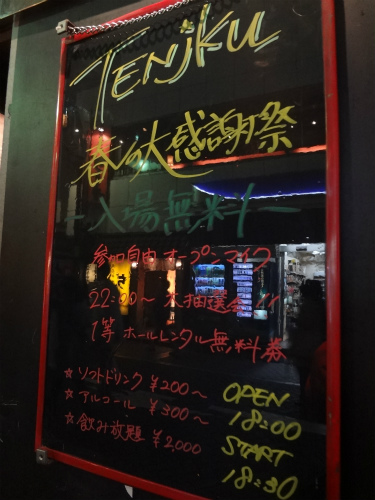 TENJIKU
春の大感謝祭
- 入場無料 -
参加自由 オープンマイク
22:00～ 大抽選会!!
1等 ホールレンタル無料券
☆ ソフトドリンク ¥200～
☆ アルコール ¥300～
☆ 飲み放題 ¥2,000
OPEN
18:00
START
18:30